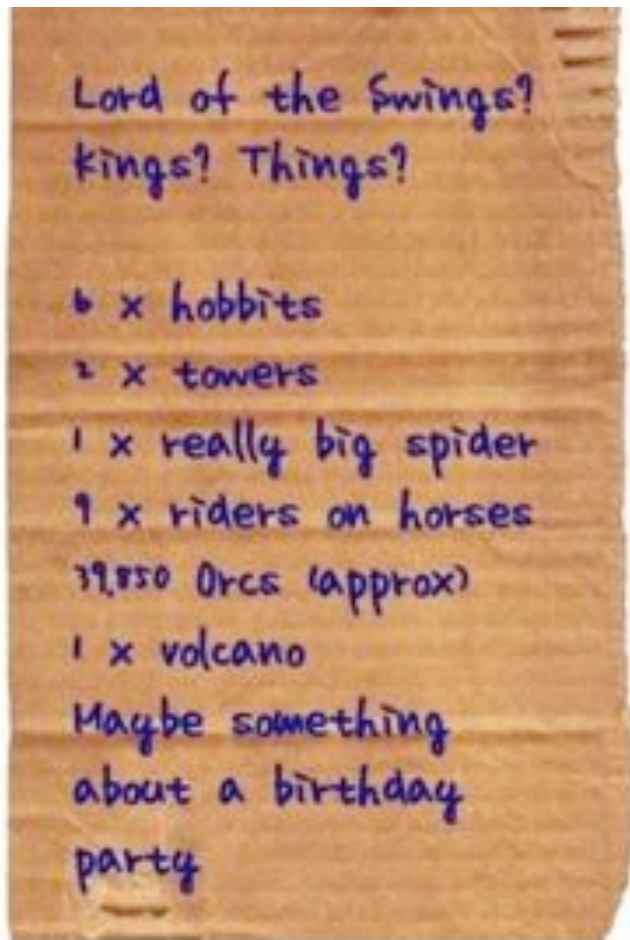 Lord of the Swings?
Kings? Things?
6 x hobbits
2 x towers
1 x really big spider
9 x riders on horses
39,850 Orcs (approx)
1 x volcano
Maybe something
about a birthday
party